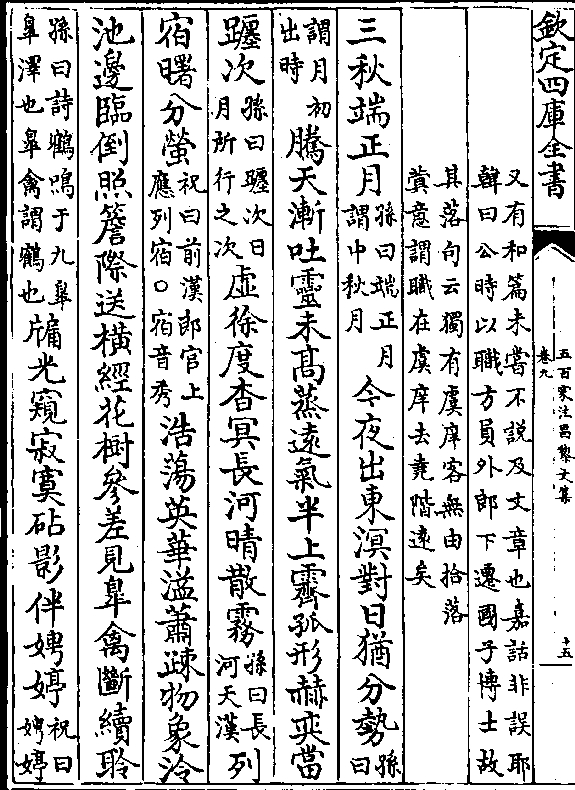 欽定四庫全書
五百家注昌黎文集
卷九
十五
又有和篇未嘗不説及文章也嘉話非誤耶
韓曰公時以職方員外郎下遷國子博士故
其落句云獨有虞庠客無由拾落
蓂意謂職在虞庠去堯階遠矣
三秋端正月孫曰端正月謂中秋月今夜出東溟對日猶分勢孫曰
謂月初出時騰天漸吐靈未髙蒸遠氣半上霽孤形赫奕當
躔次孫曰躔次日月所行之次虛徐度杳冥長河晴散霧孫曰長河天漢列
宿曙分螢祝曰前漢郎官上應列宿○宿音秀浩蕩英華溢蕭疎物象泠
池邊臨倒照簷際送横經花樹參差見臯禽斷續聆
孫曰詩鶴鳴于九臯臯澤也臯禽謂鶴也牖光窺寂寞砧影伴娉婷祝曰娉婷